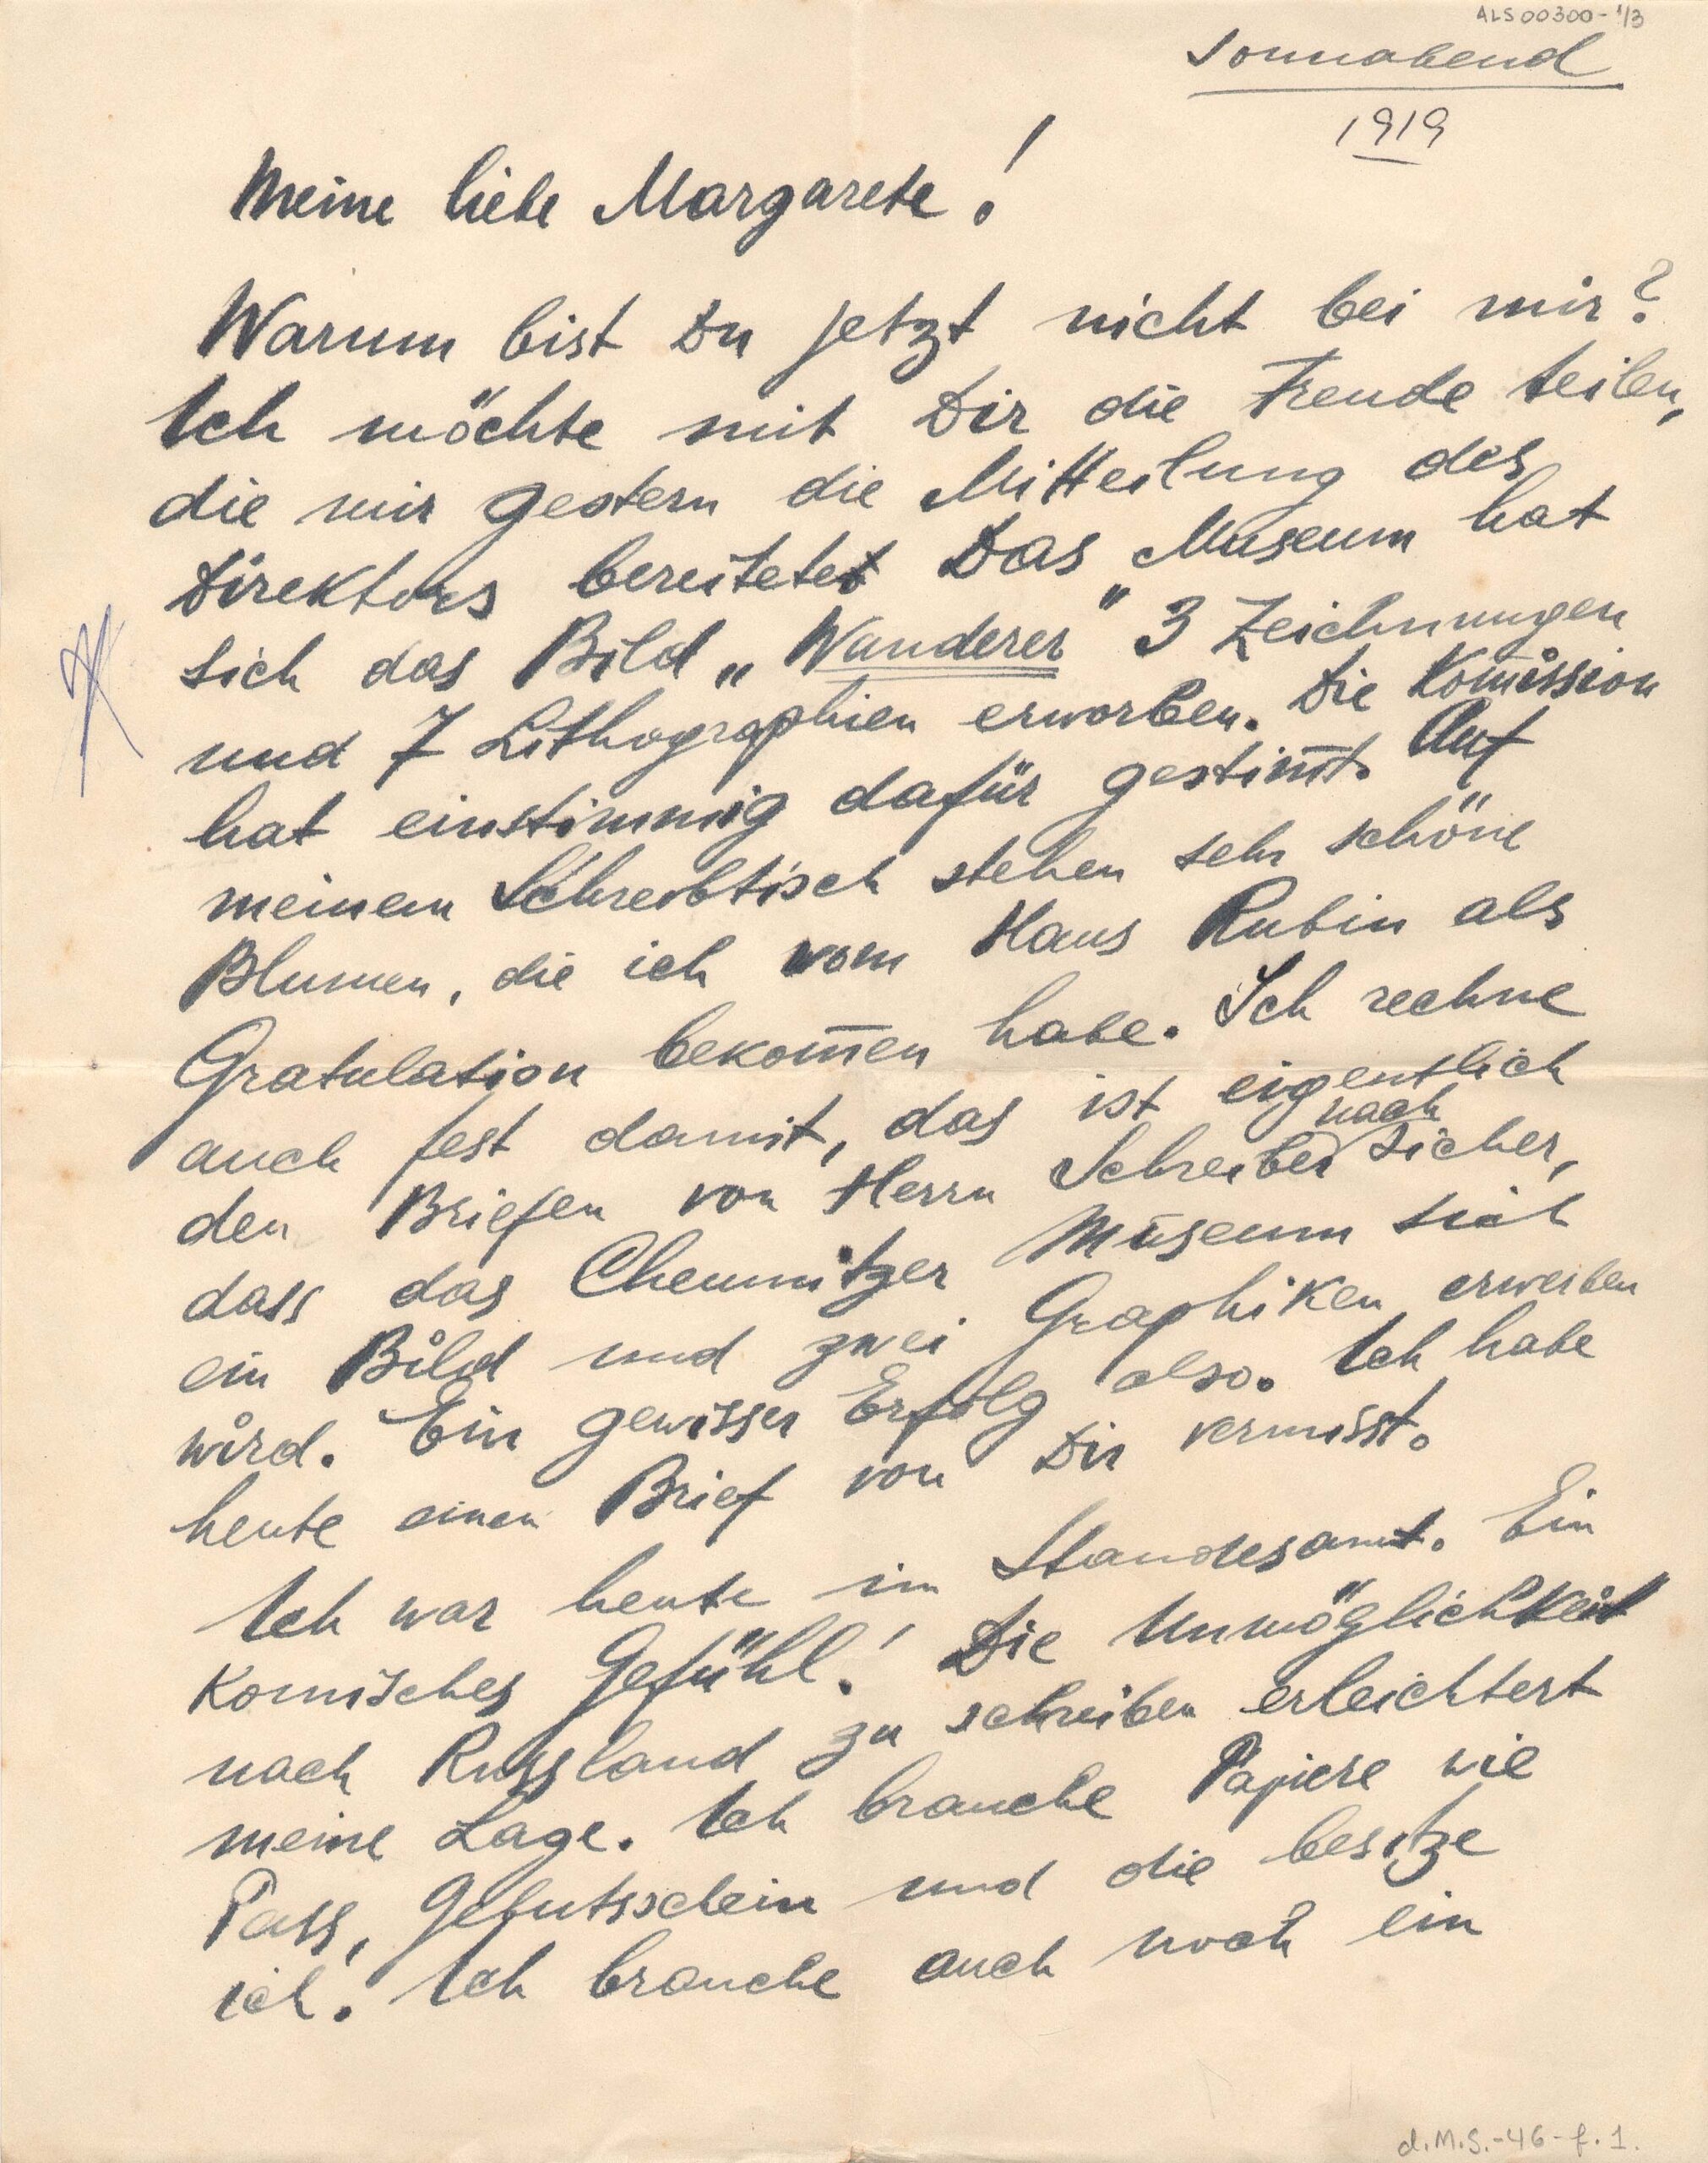 ALS00300-1/3
Sonnabend
1919
Meine liebe Margarete!
Warum bist Du jetzt nicht bei mir?
Ich möchte mit Dir die Freude teilen,
die mir gestern die Mitteilung des
Direktors bereitete. Das Museum hat
sich das Bild „Wanderer" 3 Zeichnungen
und 7 Lithographien erworben. Die Kom̅ission
hat einstimmig dafür gestim̅t. Auf
meinem Schreibtisch stehen sehr schöne
Blumen, die ich vom Haus Rubin als
Gratulation bekom̅en habe. Ich rechne
auch fest damit, das ist eigentlich
nach
den Briefen von Herrn Schreiber sicher,
dass das Chemnitzer Museum sich
ein Bild und zwei Graphiken erwerben
wird. Ein gewisser Erfolg also. Ich habe
heute einen Brief von Dir vermisst.
Ich war heute im Standesamt. Ein
komisches Gefühl! Die Unmöglichkeit
nach Russland zu schreiben erleichtert
meine Lage. Ich brauche Papiere wie
Pass, Gebutsschein und die besitze
ich. Ich brauche auch noch ein
d.M.S.-46-f.1.